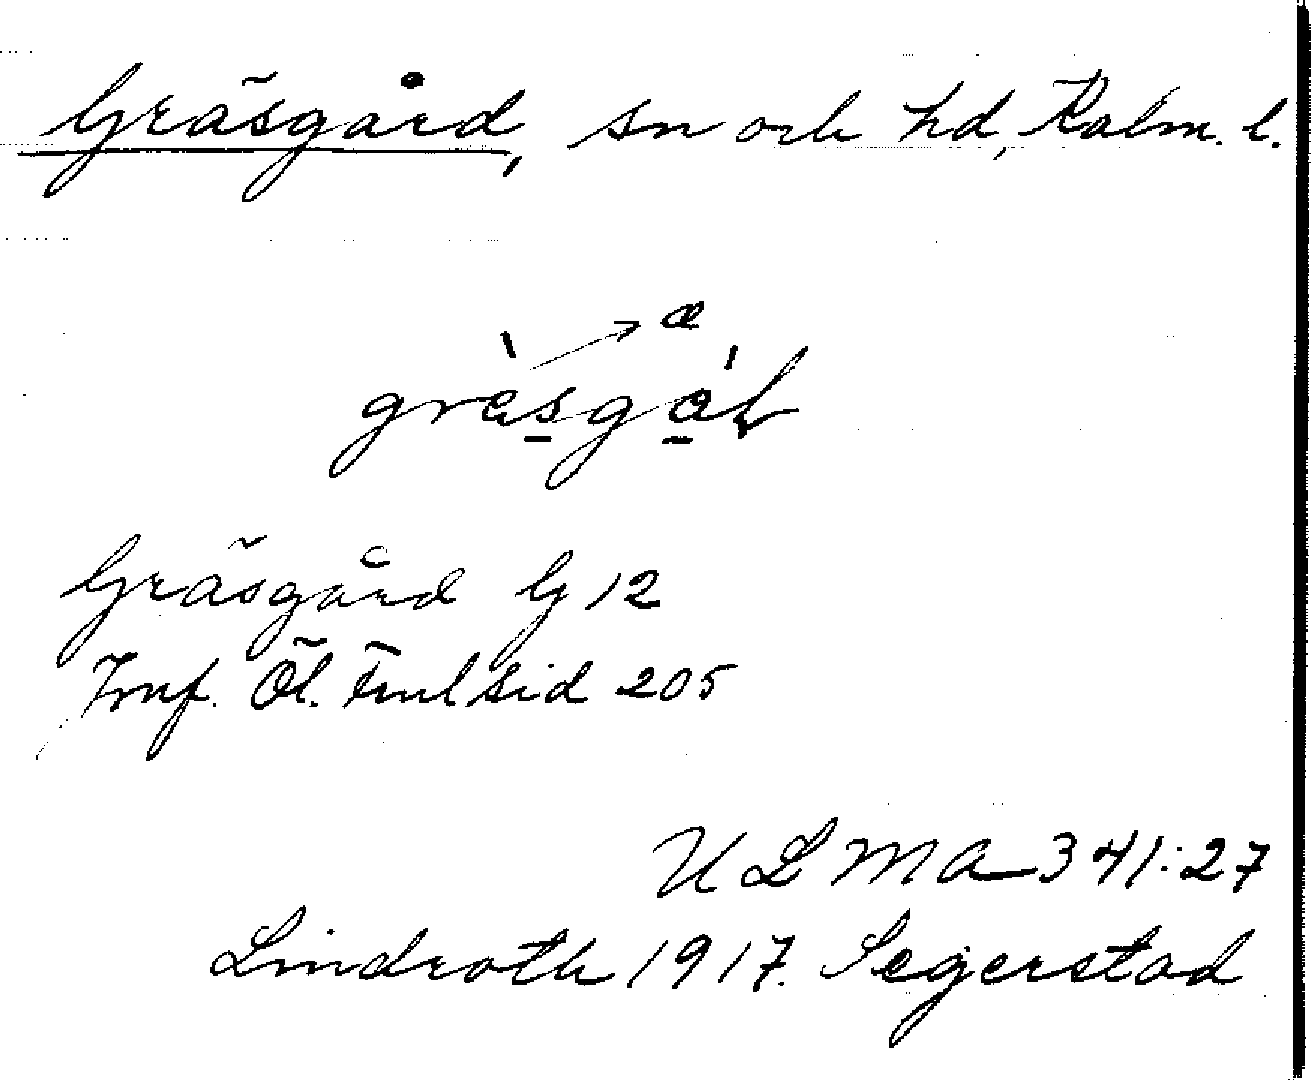 Gräsgård, sn och hd, Kalm. l.
æ
gräsgåɫ
Gräsgård G 12
Jmf. Öl. Fmltid 205
ULMA 341:27
Lindroth 1917. Segerstad